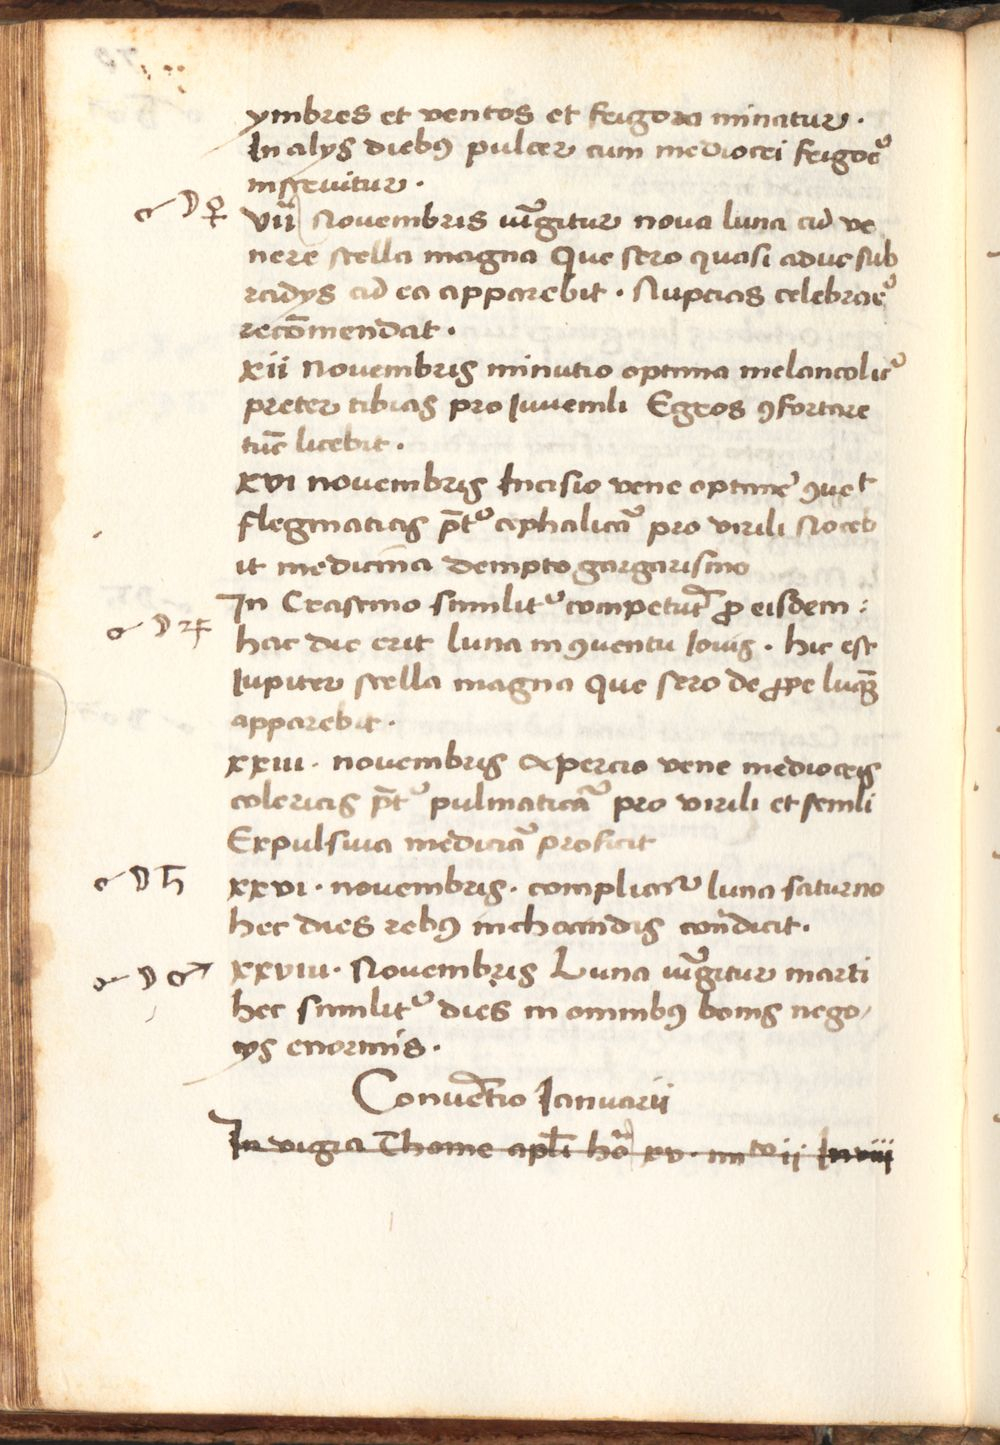 ymbres et ventos et frigora minatur.
In alys diebꝰ pulcer cum mediocri frigore
inscruitur.
☌ ☽ ♀ vii Novembris iūgitur nova luna cū ve
nere stella magna Que sero quasi aduc sub
radys cū ea apparebit. Nupcias celebrare
recōmendat.
xii Novembris minutio optima melancolic̄
preter tibias pro Iuvenili Egros ꝯfortare
tūc licebit.
xvi novembris Incisio vene optime ꝯuet
flegmaticis p̄t cephalicā pro virili Noceb
it medicina dempto gargarismo
In Crastino similitr̄ competūt ꝓ eisdem:
☌ ☽ ♃ hac die erit luna in ꝯuentu Iovis. hic est
Iupiter stella magna que sero de ꝓpe
apparebit.
xxiii. novembris Apercio vene mediocris
colericis p̄t pulmaticā pro virili et senili
Expulsiva medicīa proficit
☌ ☽ ♄ xxvi. novembris. complicatr̄ luna saturno
hec dies rebꝰ inchoandis condicit.
☌ ☽ ♂ xxviii. Novembris Luna iūgitur marti
hec similitr̄ dies in omnibꝰ bonis nego/
cys enormis.
Convētio Ianuarii
In vigīa Thome apl̄i ho xv. ii In viii